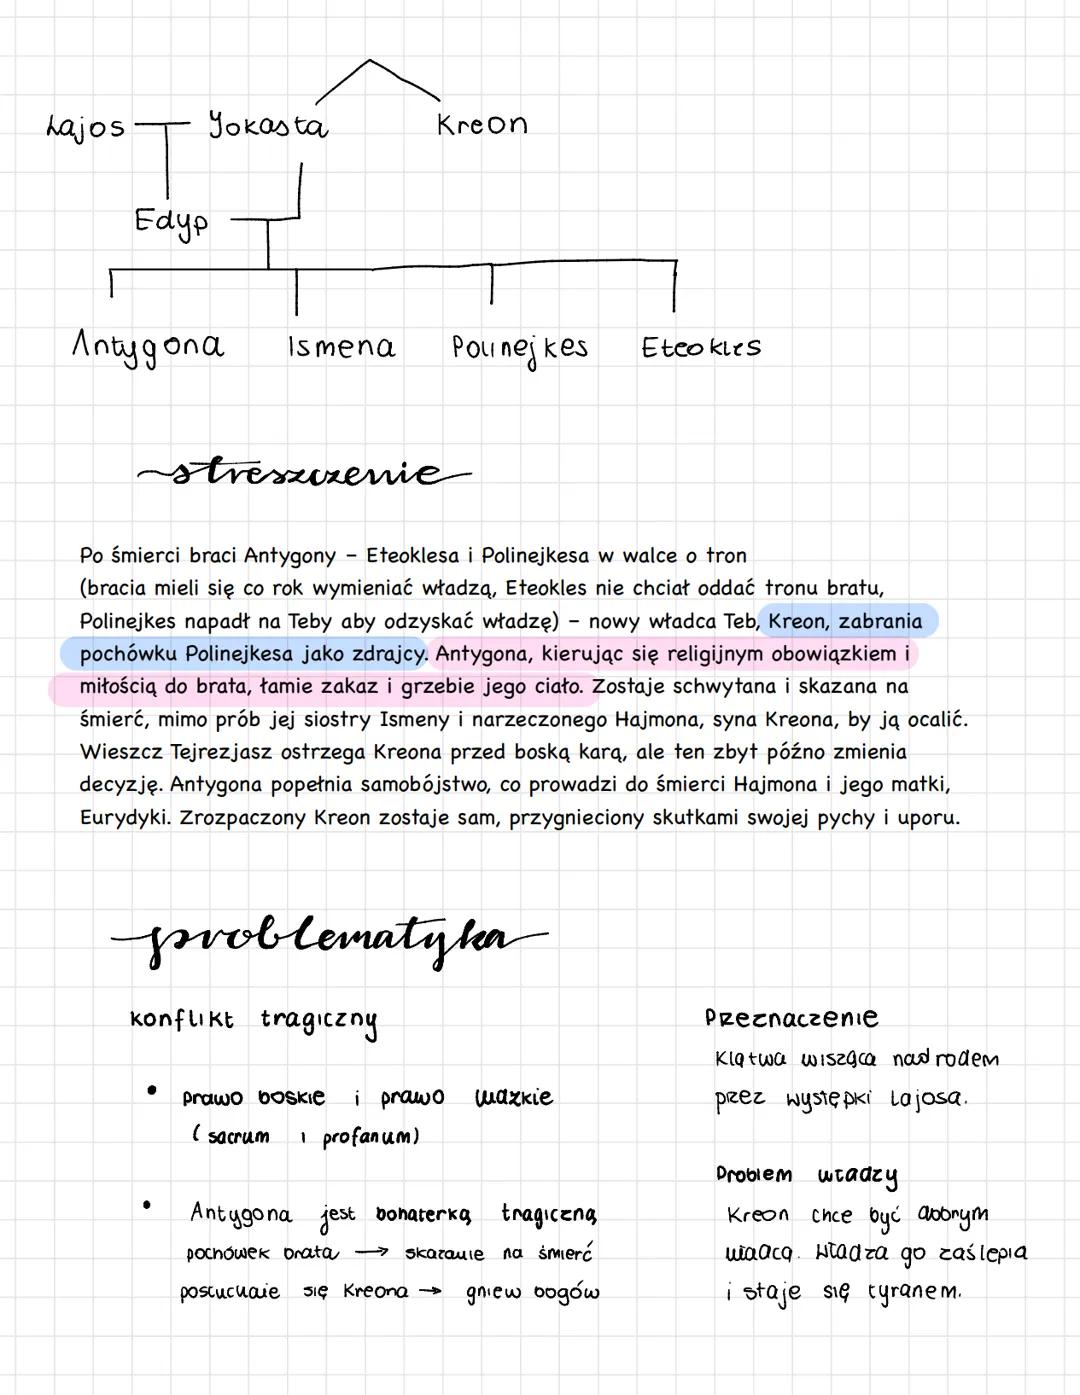 Lajos Jokasta Kreon
Edyp
Antygona Ismena Polinejkes Eteokles
streszczenie
Po śmierci braci Antygony – Eteoklesa i Polinejkesa w walce o tron
(bracia mieli się co rok wymieniać władzą, Eteokles nie chciał oddać tronu bratu,
Polinejkes napadł na Teby aby odzyskać władzę) – nowy władca Teb, Kreon, zabrania
pochówku Polinejkesa jako zdrajcy. Antygona, kierując się religijnym obowiązkiem i
miłością do brata, łamie zakaz i grzebie jego ciało. Zostaje schwytana i skazana na
śmierć, mimo prób jej siostry Ismeny i narzeczonego Hajmona, syna Kreona, by ją ocalić.
Wieszcz Tejrezjasz ostrzega Kreona przed boską karą, ale ten zbyt późno zmienia
decyzję. Antygona popełnia samobójstwo, co prowadzi do śmierci Hajmona i jego matki,
Eurydyki. Zrozpaczony Kreon zostaje sam, przygnieciony skutkami swojej pychy i uporu.
problematyka
konflikt tragiczny
• prawo boskie i prawo ludzkie
(sacrum i profanum)
• Antygona jest bohaterką tragiczną
pochówek brata → skazanie na śmierć
posłuchanie się Kreona → gniew bogów
Przeznaczenie
Klątwa wisząca nad rodem
przez występki Lajosa.
Problem władzy
Kreon chce być dobrym
władcą. Władza go zaślepia
i staje się tyranem.